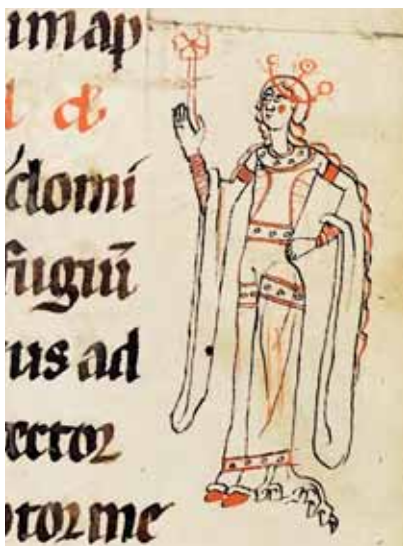 imap
domi
fugiū
us ad
ector
ptor me